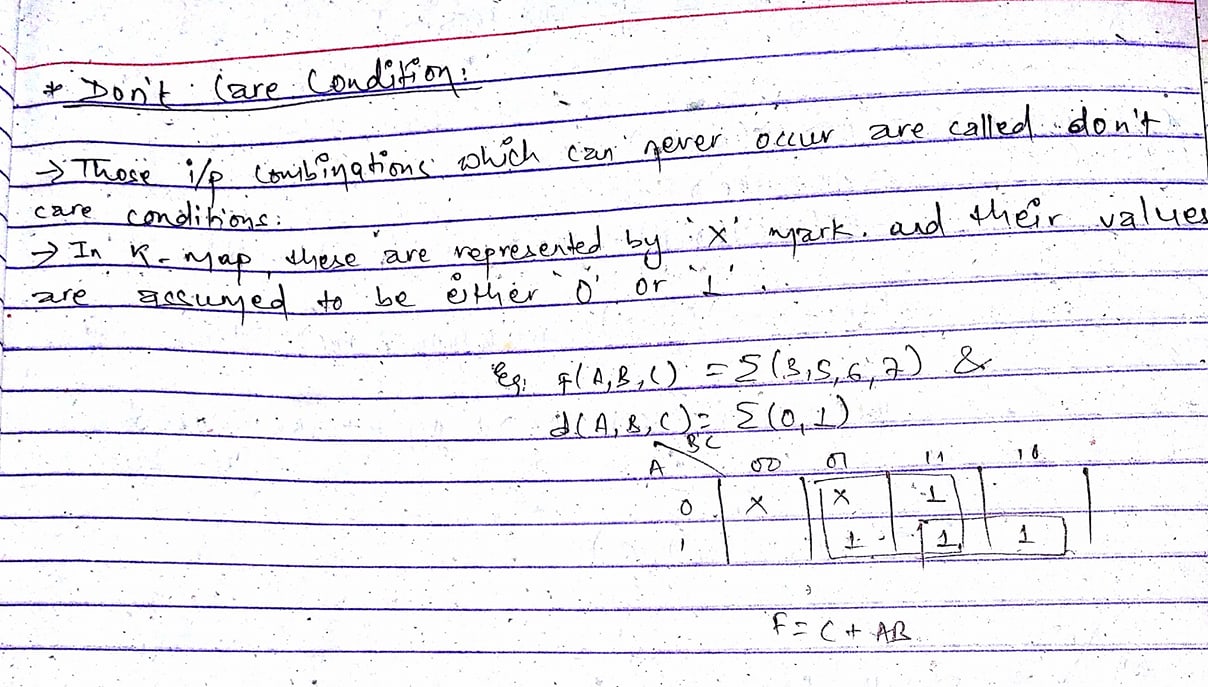 * Don't Care Condition:
→ Those i/p combinations which can never occur are called don't
care conditions.
→ In K-map these are represented by 'X' mark. and their values
are assumed to be either '0' or '1'.
Eg: f(A,B,C) = Σ(3,5,6,7) &
d(A,B,C) = Σ(0,1)
BC
A 00 01 11 10
0 X X 1
1 1 1 1
F = C + AB